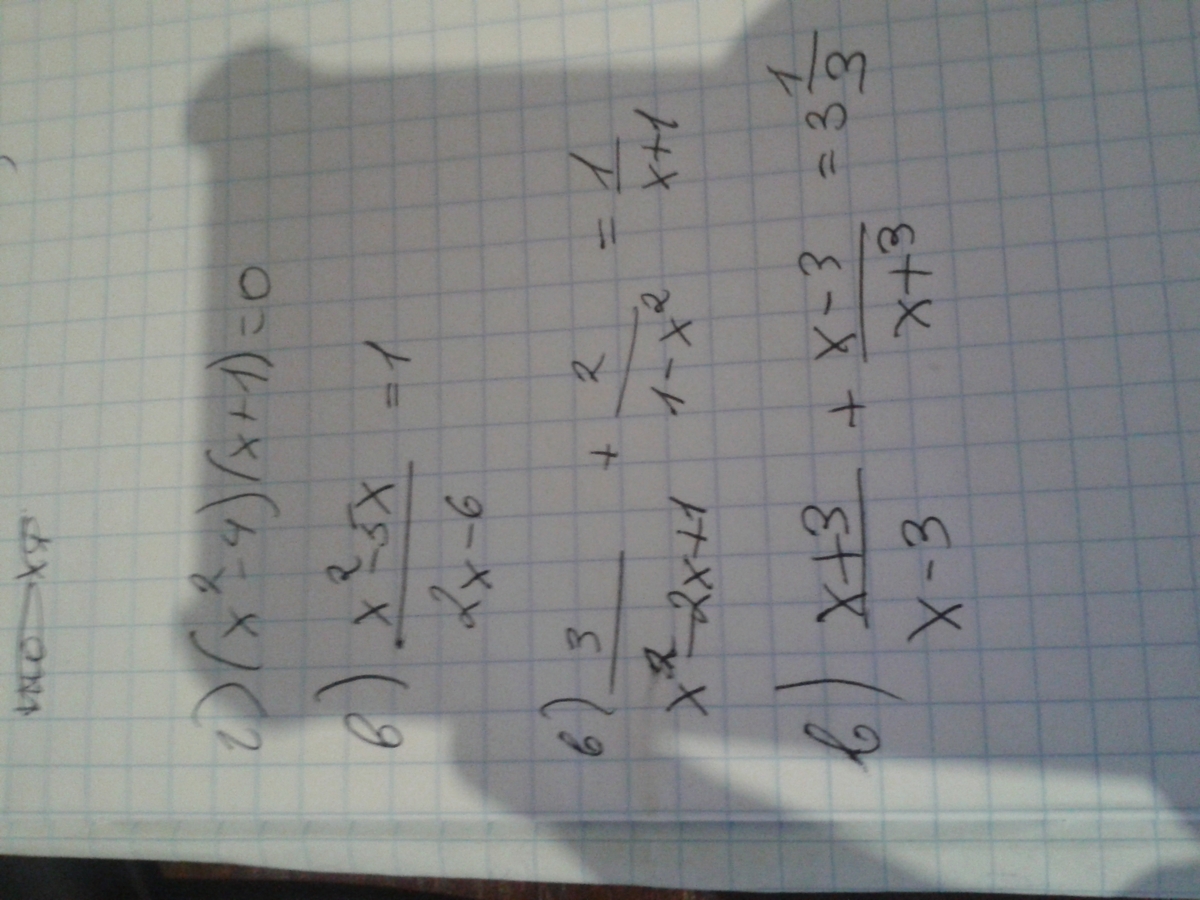 г) (x²-4)(x+1)=0
в) \frac{x²-5x}{2x-6} =1
в) \frac{3}{x²-2x+1} + \frac{2}{1-x²} = \frac{1}{x+1}
в) \frac{x+3}{x-3} + \frac{x-3}{x+3} = 3\frac{1}{3}